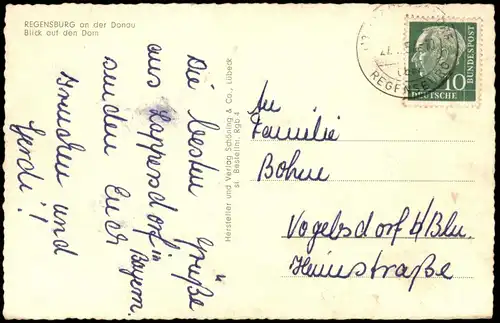 REGENSBURG an der Donau
Blick auf den Dom
Die besten Grüße
aus Lappersdorf in Bayern
senden Euch
und
Gerdi!
Hersteller und Verlag Schöning & Co., Lübeck
Bestellnr. Rgb 4
An
Familie
Bohne
Vogelsdorf b/Bln.
Heinestraße
REGENS
10
DEUTSCHE
BUNDESPOST